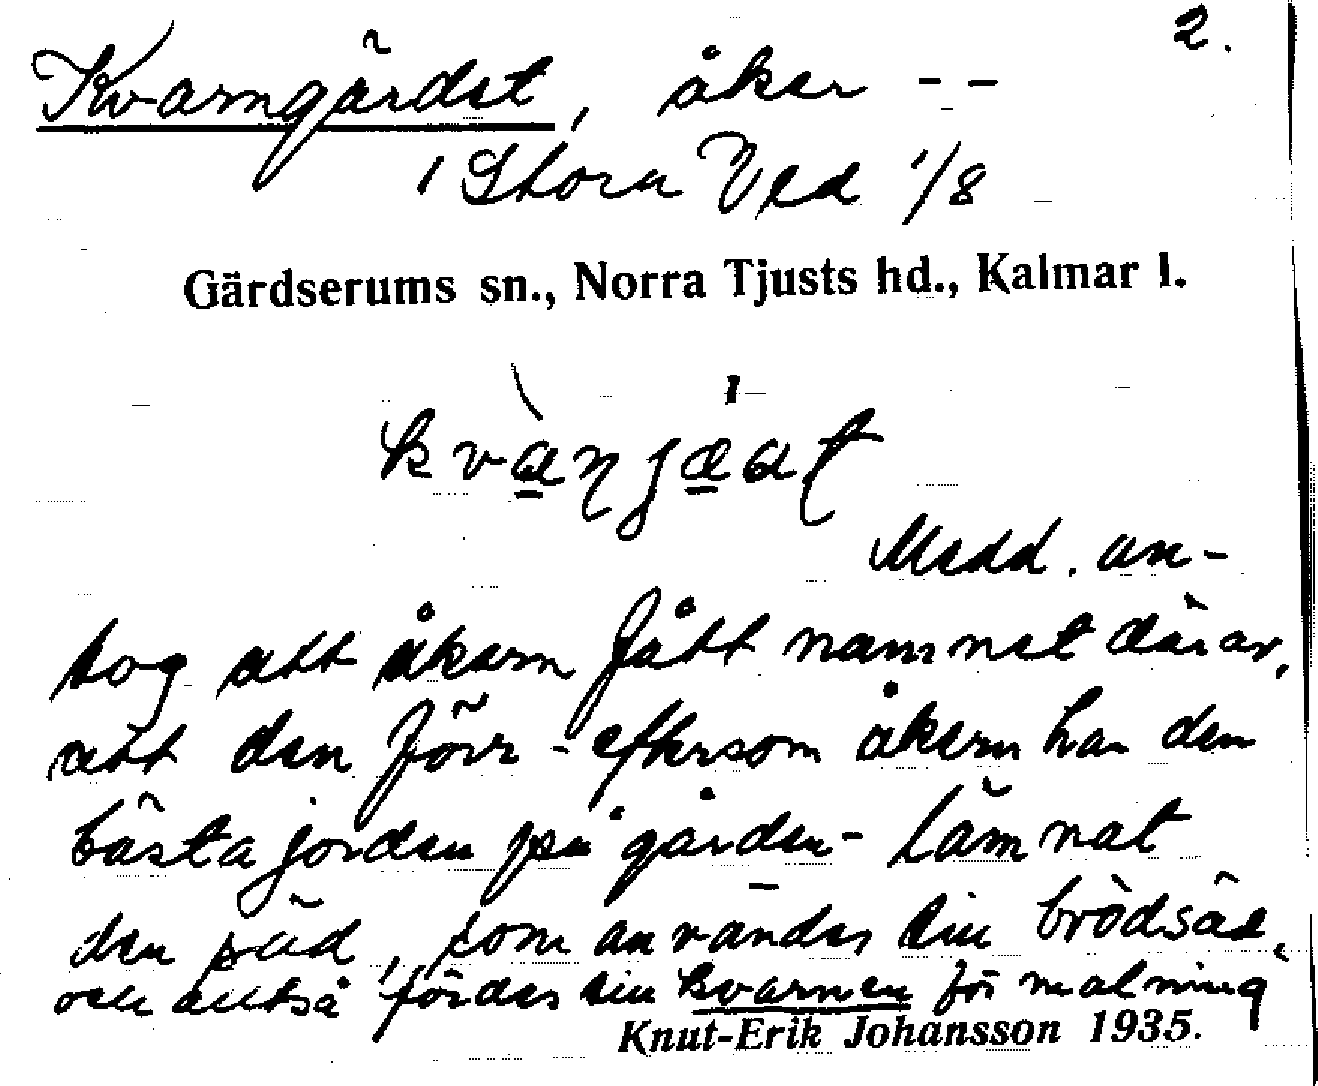 2.
Kvarngärdet, åker - -
i Stora Ved 1/8
Gärdserums sn., Norra Tjusts hd., Kalmar l.
Medd. an-
tog att åkern fått namnet därav,
att den förr - eftersom åkern har den
bästa jorden på gården - lämnat
den säd, som användes till brödsäd,
och alltså fördes till kvarnen för malning
Knut-Erik Johansson 1935.